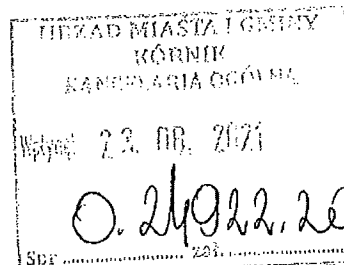 URZĄD MIASTA I GMINY
KÓRNIK
KANCELARIA OGÓLNA
Wpłynęł 23. 08. 2021
O. 24922.20
Spr. .................. zał. ..................